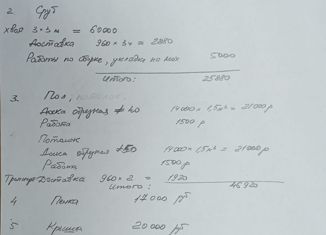 2 Сруб
хвоя 3×3 м = 60000
Доставка 960 × 3ч = 2880
Работы по сборке, укладка на мох 5000
Итого: 25880
3. Пол,
Доска отрезная 40 14000 × 1,5 м³ = 21000 р
Работа 1500 р
Потолок
Доска отрезная 50 14000 × 1,5 м³ = 21000 р
Работа 1500 р
Доставка 960 × 2 = 1920
Итого: 46920
4 17000 руб
5 Крыша 20000 руб